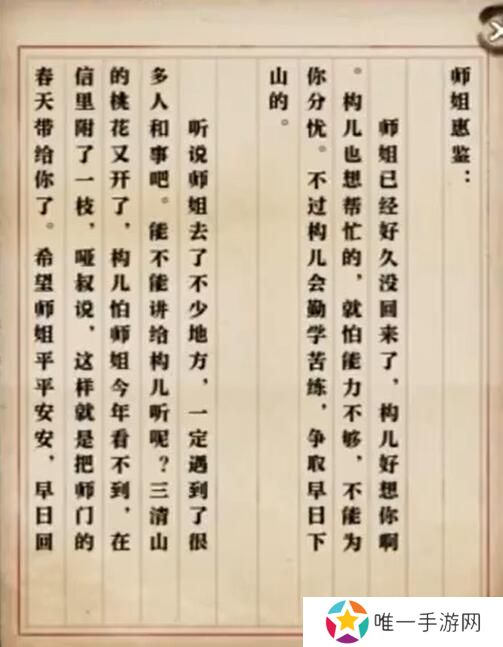 师姐惠鉴：
师姐已经好久没回来了，构儿好想你啊
。构儿也想帮忙的，就怕能力不够，不能为
你分忧。不过构儿会勤学苦练，争取早日下
山的。
听说师姐去了不少地方，一定遇到了很
多人和事吧。能不能讲给构儿听呢？三清山
的桃花又开了，构儿怕师姐今年看不到，在
信里附了一枝，哑叔说，这样就是把师门的
春天带给你了。希望师姐平平安安，早日回
唯一手游网